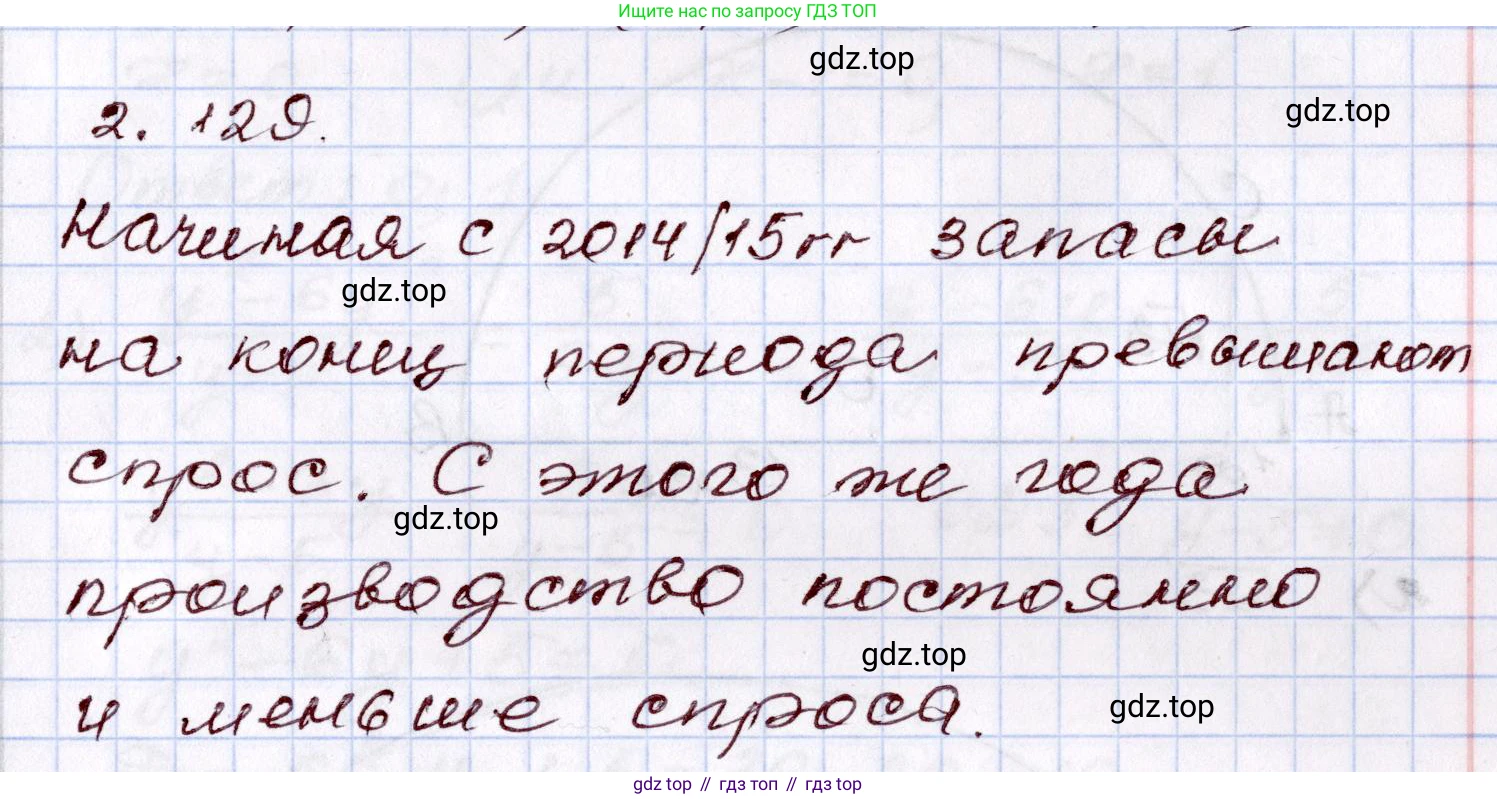 Ищите нас по запросу ГДЗ ТОП
gdz.top
gdz.top
2. 129.
Начиная с 2014/15гг запасы
gdz.top
на конец периода превышают
спрос. С этого же года
gdz.top
производство постоянно
gdz.top
и меньше спроса.
gdz.top
gdz top // гдз топ // гдз top